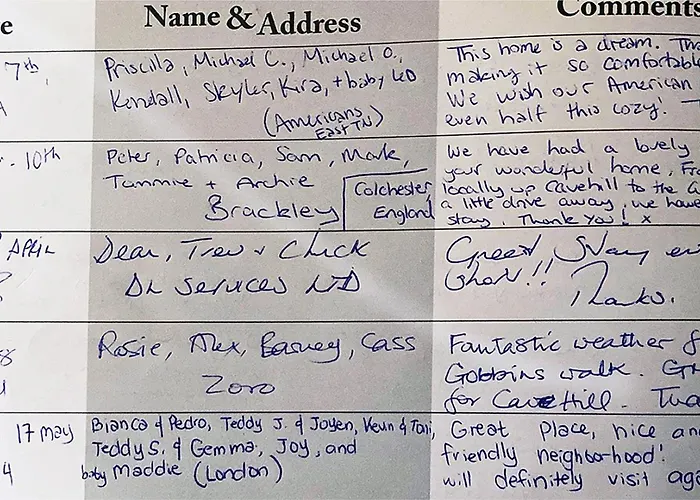 e
Name & Address
Comments
7th
Priscilla, Michael C., Michael O.,
Kendall, Skyler, Kira, + baby Leo
(Americans
East TN)
This home is a dream.
making it so comfortable
We wish our American
even half this cozy!
10th
Peter, Patricia, Sam, Mark,
Tammie + Archie
Brackley
Colchester,
England
We have had a lovely
your wonderful home.
locally up Cavehill to the
a little drive away, we have
stay. Thank you! x
April
Dean, Trev + Chick
DL Services
Great Stay
Short!!
Thanks.
Rosie, Alex, Barney, Cass
Zoro
Fantastic weather
Gobbins walk.
for CaveHill.
17 may
4
Bianca & Pedro, Teddy J. & Joyen, Keun & Tani,
Teddy S. & Gemma, Joy, and
baby Maddie (London)
Great Place, nice
friendly neighborhood!
will definitely visit